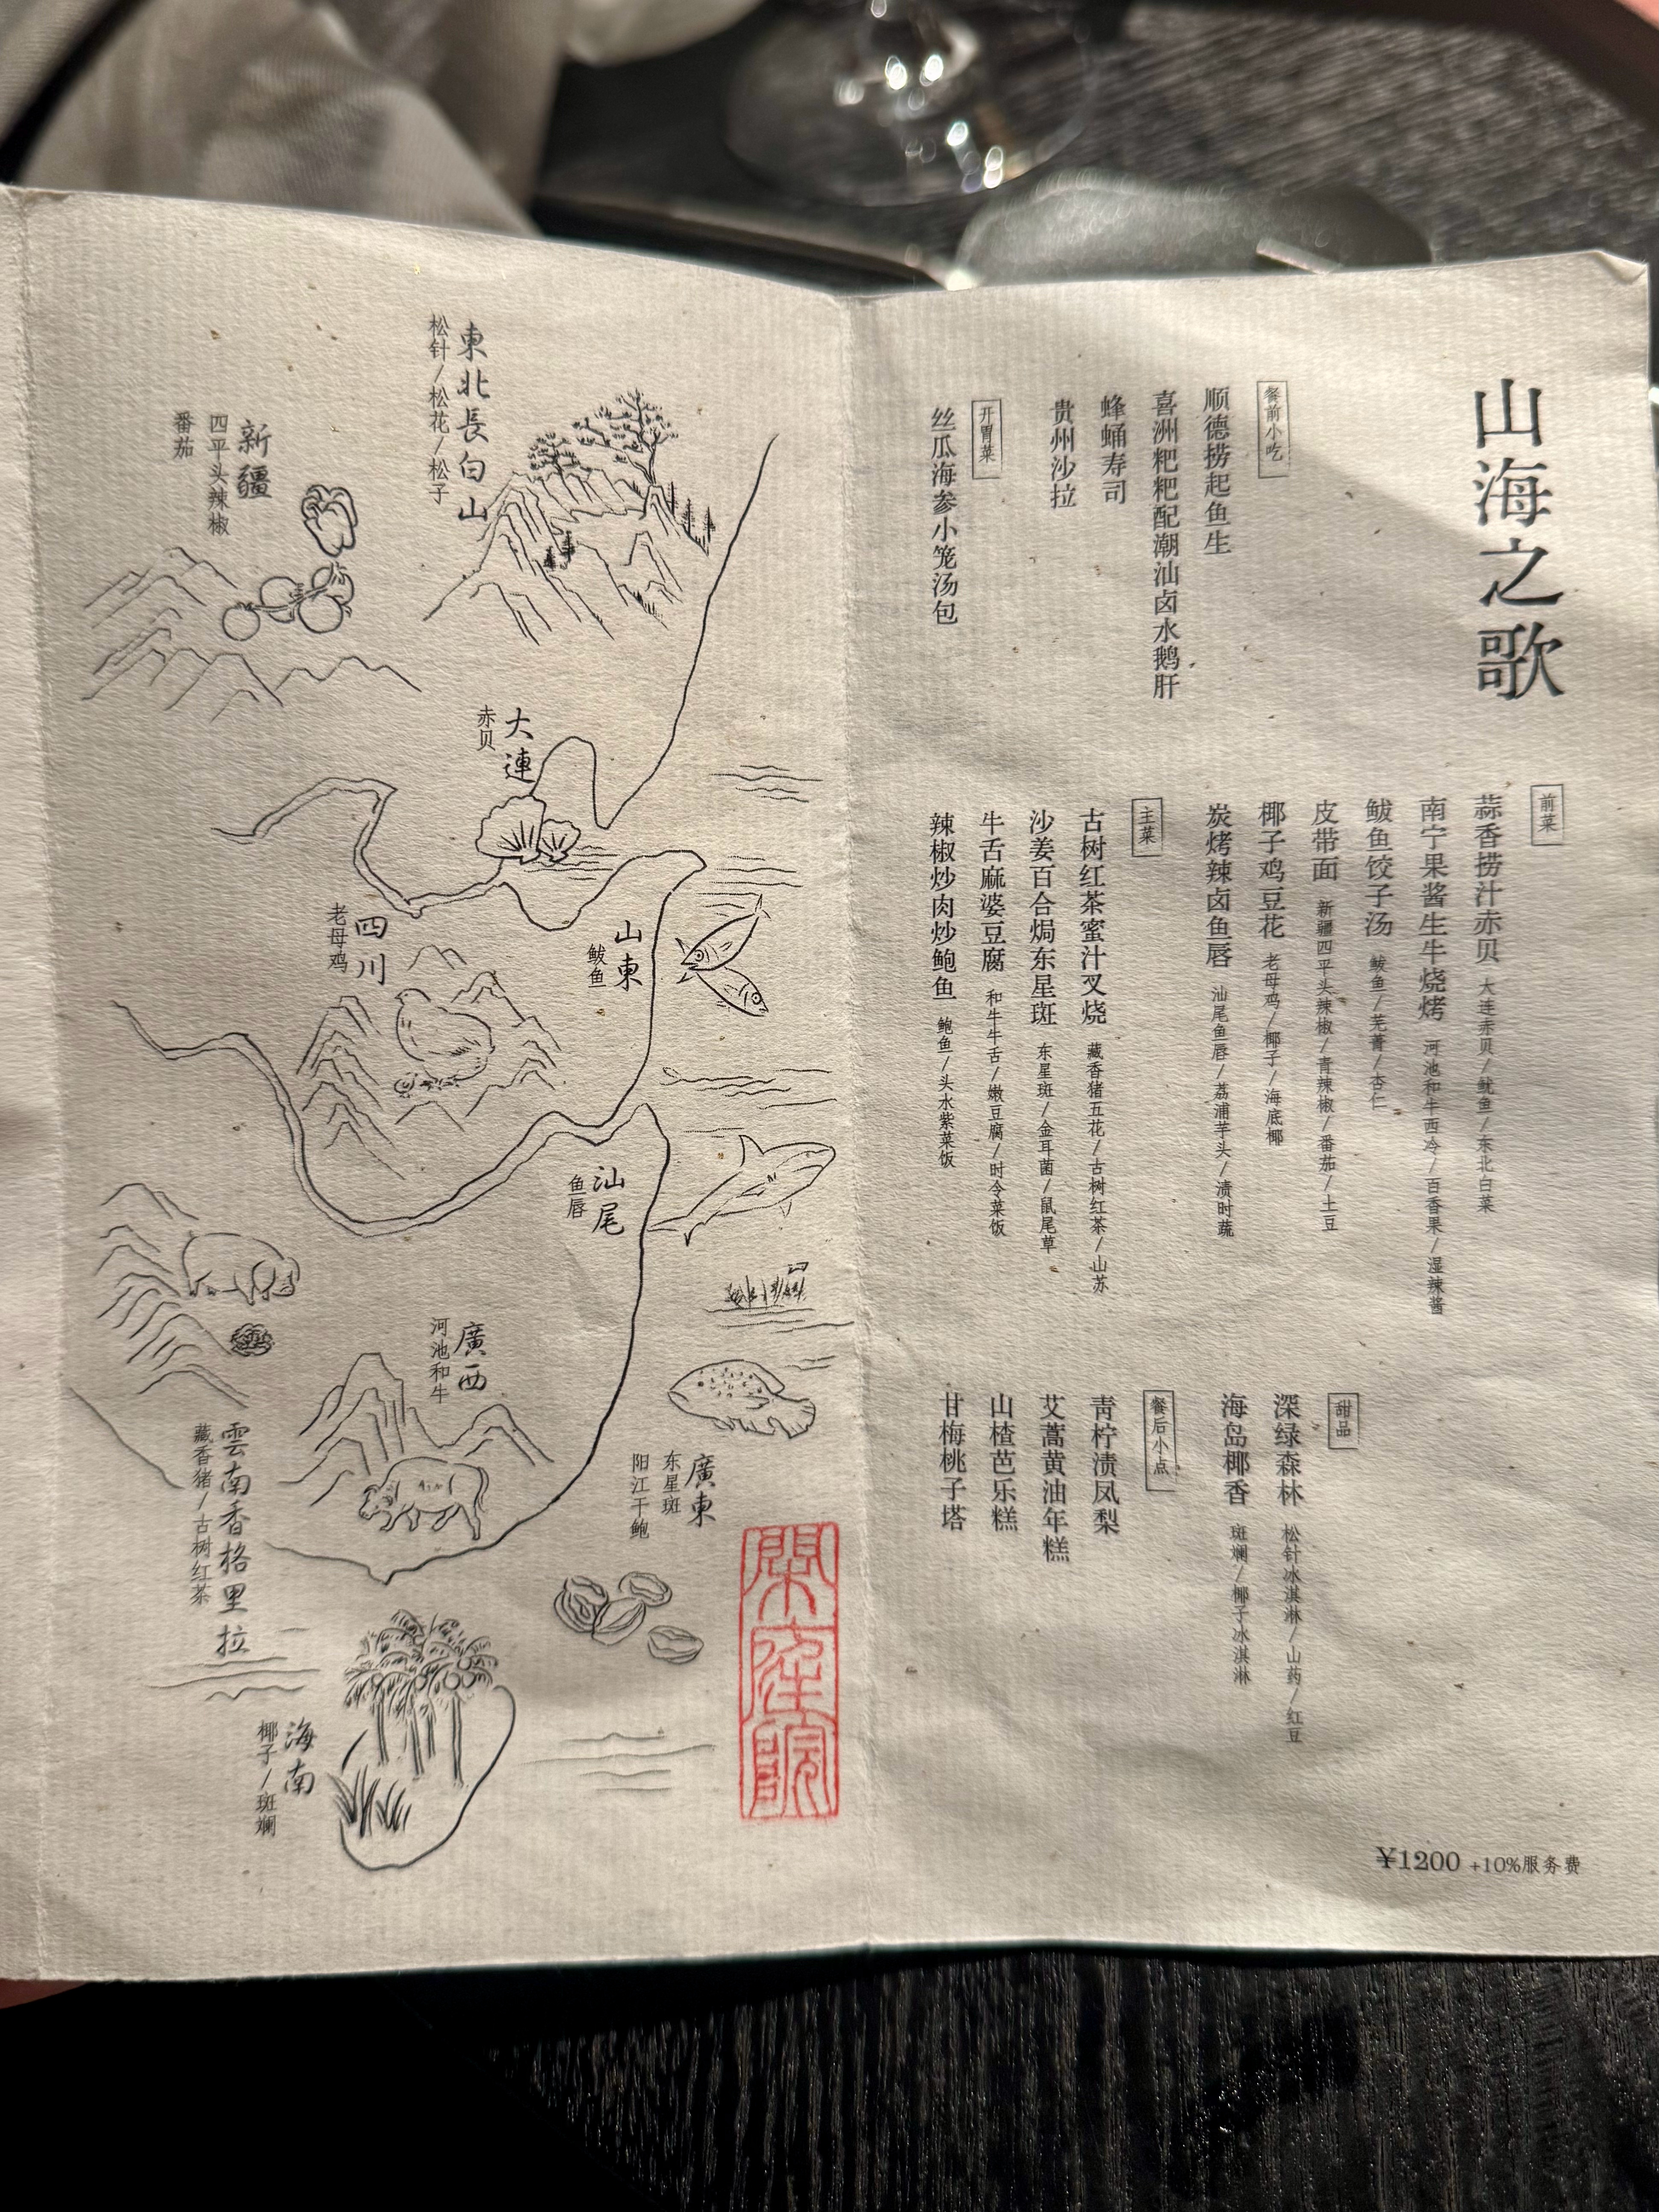 山海之歌
餐前小吃
顺德捞起鱼生
喜洲粑粑配潮汕卤水鹅肝
蜂蛹寿司
贵州沙拉
开胃菜
丝瓜海参小笼汤包
前菜
蒜香捞汁赤贝 大连赤贝/鱿鱼/东北白菜
南宁果酱生牛烧烤 河池和牛西冷/百香果/湿辣酱
鲅鱼饺子汤 鲅鱼/芜菁/杏仁
皮带面 新疆四平头辣椒/青辣椒/番茄/土豆
椰子鸡豆花 老母鸡/椰子/海底椰
炭烤辣卤鱼唇 汕尾鱼唇/荔浦芋头/渍时蔬
主菜
古树红茶蜜汁叉烧 藏香猪五花/古树红茶/山苏
沙姜百合焗东星斑 东星斑/金耳菌/鼠尾草
牛舌麻婆豆腐 和牛牛舌/嫩豆腐/时令菜饭
辣椒炒肉炒鲍鱼 鲍鱼/头水紫菜饭
甜品
深绿森林 松针冰淇淋/山药/红豆
海岛椰香 斑斓/椰子冰淇淋
餐后小点
青柠渍凤梨
艾蒿黄油年糕
山楂芭乐糕
甘梅桃子塔
¥1200 +10%服务费
東北長白山
松针/松花/松子
新疆
四平头辣椒
番茄
大連
赤贝
山東
鲅鱼
四川
老母鸡
汕尾
鱼唇
廣西
河池和牛
廣東
东星斑
阳江干鲍
雲南香格里拉
藏香猪/古树红茶
海南
椰子/斑斓